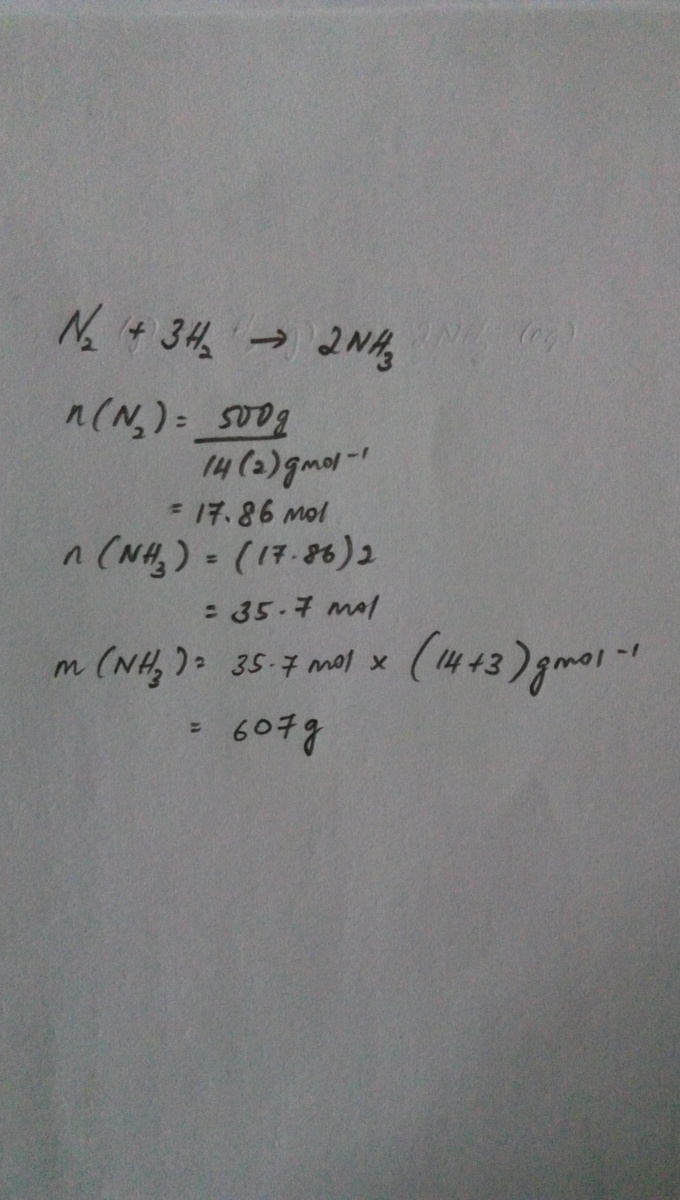 N₂ + 3H₂ → 2NH₃
n(N₂) = 500g / 14(2)gmol⁻¹
= 17.86 mol
n(NH₃) = (17.86)2
= 35.7 mol
m(NH₃) = 35.7 mol × (14+3)gmol⁻¹
= 607g